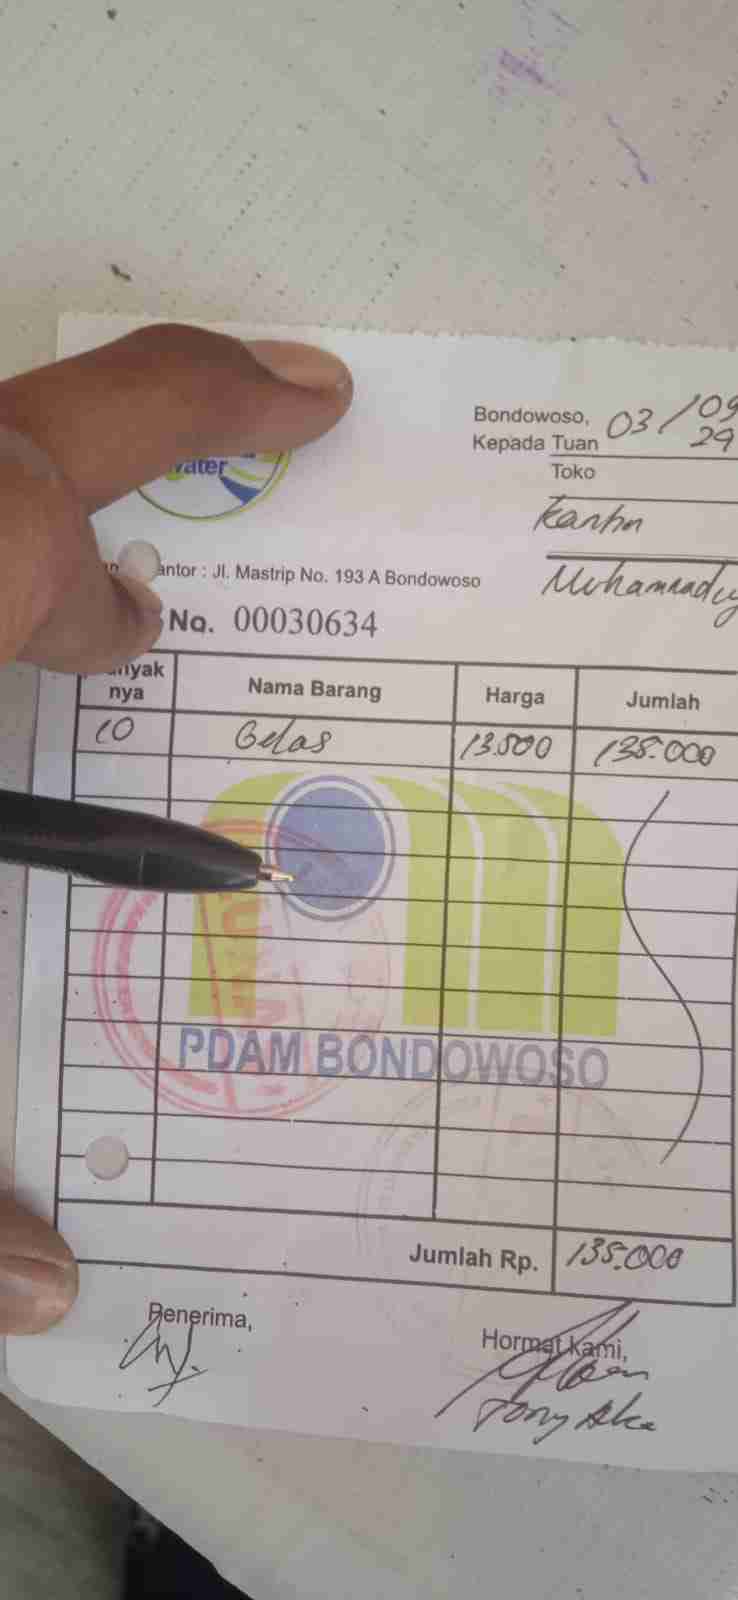 Bondowoso, 03/09
Kepada Tuan 24
Toko
Kantin
water
antor : Jl. Mastrip No. 193 A Bondowoso
No. 00030634
nyak nya Nama Barang Harga Jumlah
10 Gelas 13.500 135.000
PDAM BONDOWOSO
Jumlah Rp. 135.000
Penerima,
Hormat kami,
Tony